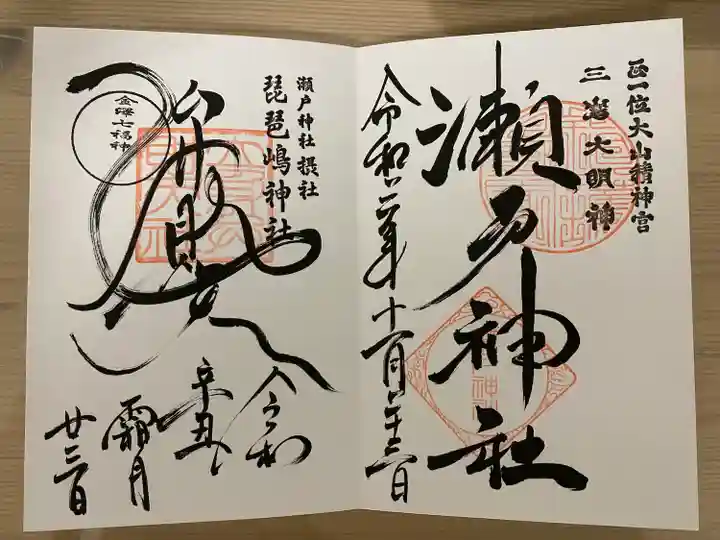 正一位大山積神宮
三嶌大明神
瀬戸神社
令和三年十一月廿三日
瀬戸神社摂社
琵琶嶋神社
金澤七福神
令和
辛丑
霜月
廿三日